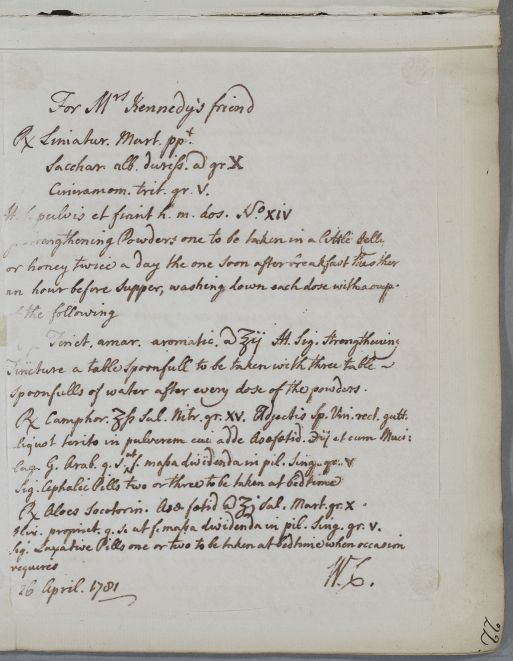 For Mrs Kennedy's friend
℞ Limatur. Mart. ppt.
Sacchar. alb. duriss. a gr. X
Cinnamom. trit. gr. V.
M. f. pulvis et fiant h. m. dos. No XIV
Strengthening Powders one to be taken in a little Jelly
or honey twice a day the one soon after breakfast the other
an hour before supper, washing down each dose with a cup
of the following
Tinct. amar. aromatic. a ℥ij M. Sig. Strengthening
Tincture a table spoonfull to be taken with three table
spoonfulls of water after every dose of the powders.
℞ Camphor. ʒß Sal. Nitr. gr. XV. Adjectis Sp. Vin. rect. gutt.
aliquot terito in pulverem cui adde Asafotid. ʒij et cum Muci:
lag. G. Arab. q. s. ut f. massa dividenda in pil. Sing. gr. V
Sig. Cephalic Pills two or three to be taken at bedtime
℞ Aloes Socotorin. Asafotid a ʒj Sal. Mart. gr. X.
Elix. propriet. q. s. ut f. massa dividenda in pil. Sing. gr. V.
Sig. Laxative Pills one or two to be taken at bedtime when occasion
requires
W. C.
26 April. 1781
22